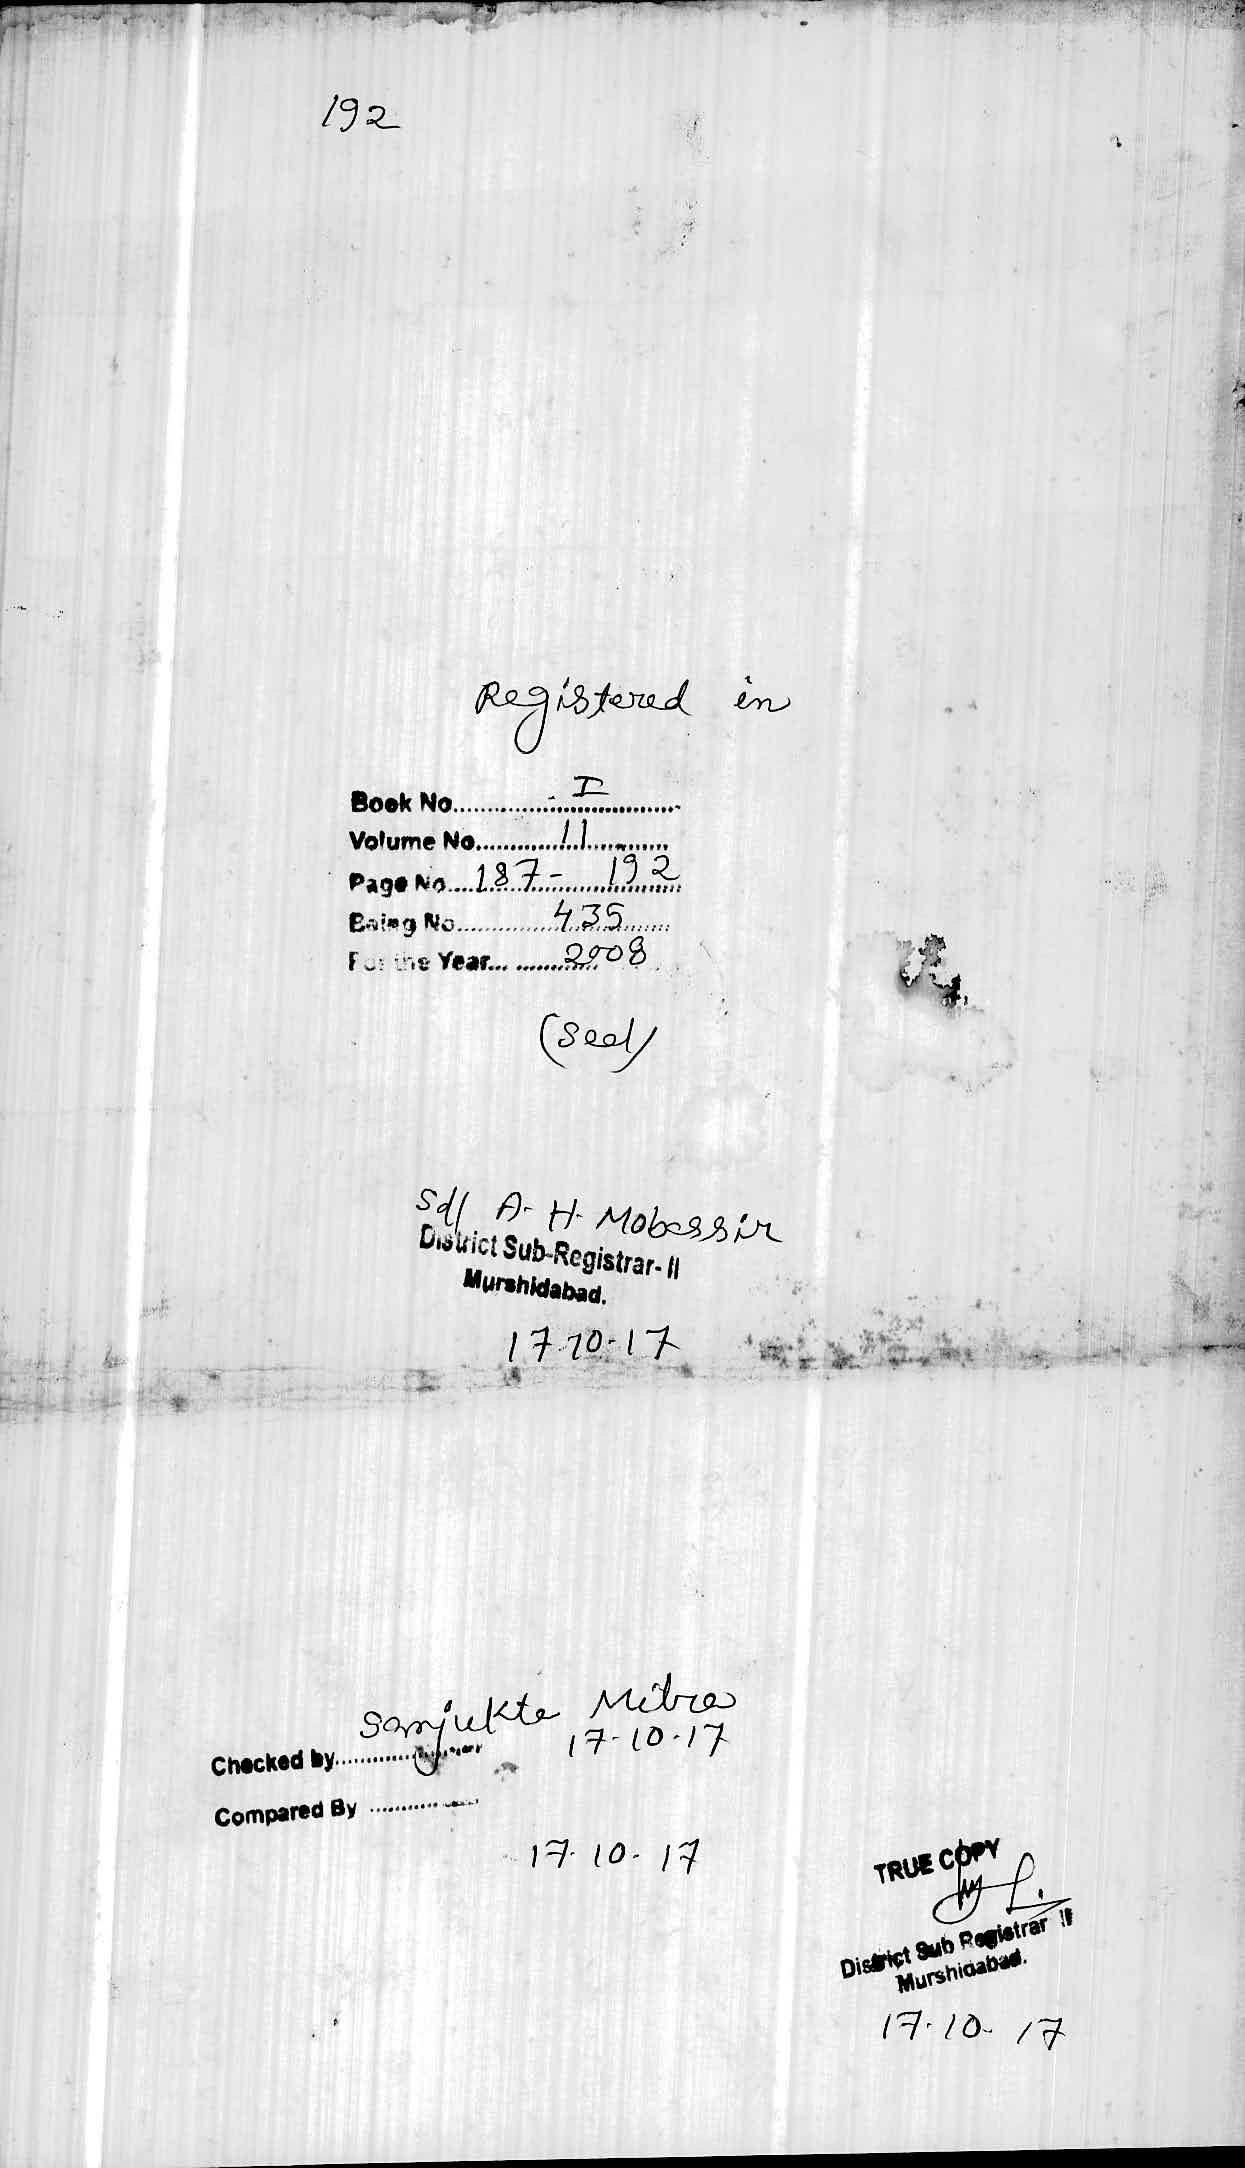 192
Registered in
Book No. I
Volume No. 11
Page No. 187- 192
Being No. 435
For the Year... 2008
(Seal)
Sd/ A. H. Mobassir
District Sub-Registrar-II
Murshidabad.
17-10-17
Sanjukta Mitra
17-10-17
Checked by
Compared By
17-10-17
TRUE COPY
District Sub Registrar II
Murshidabad.
17-10-17